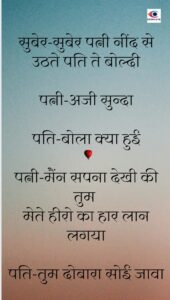 सुबेर-सुबेर पत्नी नींद से
उठते पति ते बोल्दी
पत्नी-अजी सुन्दा
पति-बोला क्या हुई
पत्नी-मैंन सपना देखी की
तुम
मेते हीरो का हार लान
लगया
पति-तुम दोबारा सोई जावा